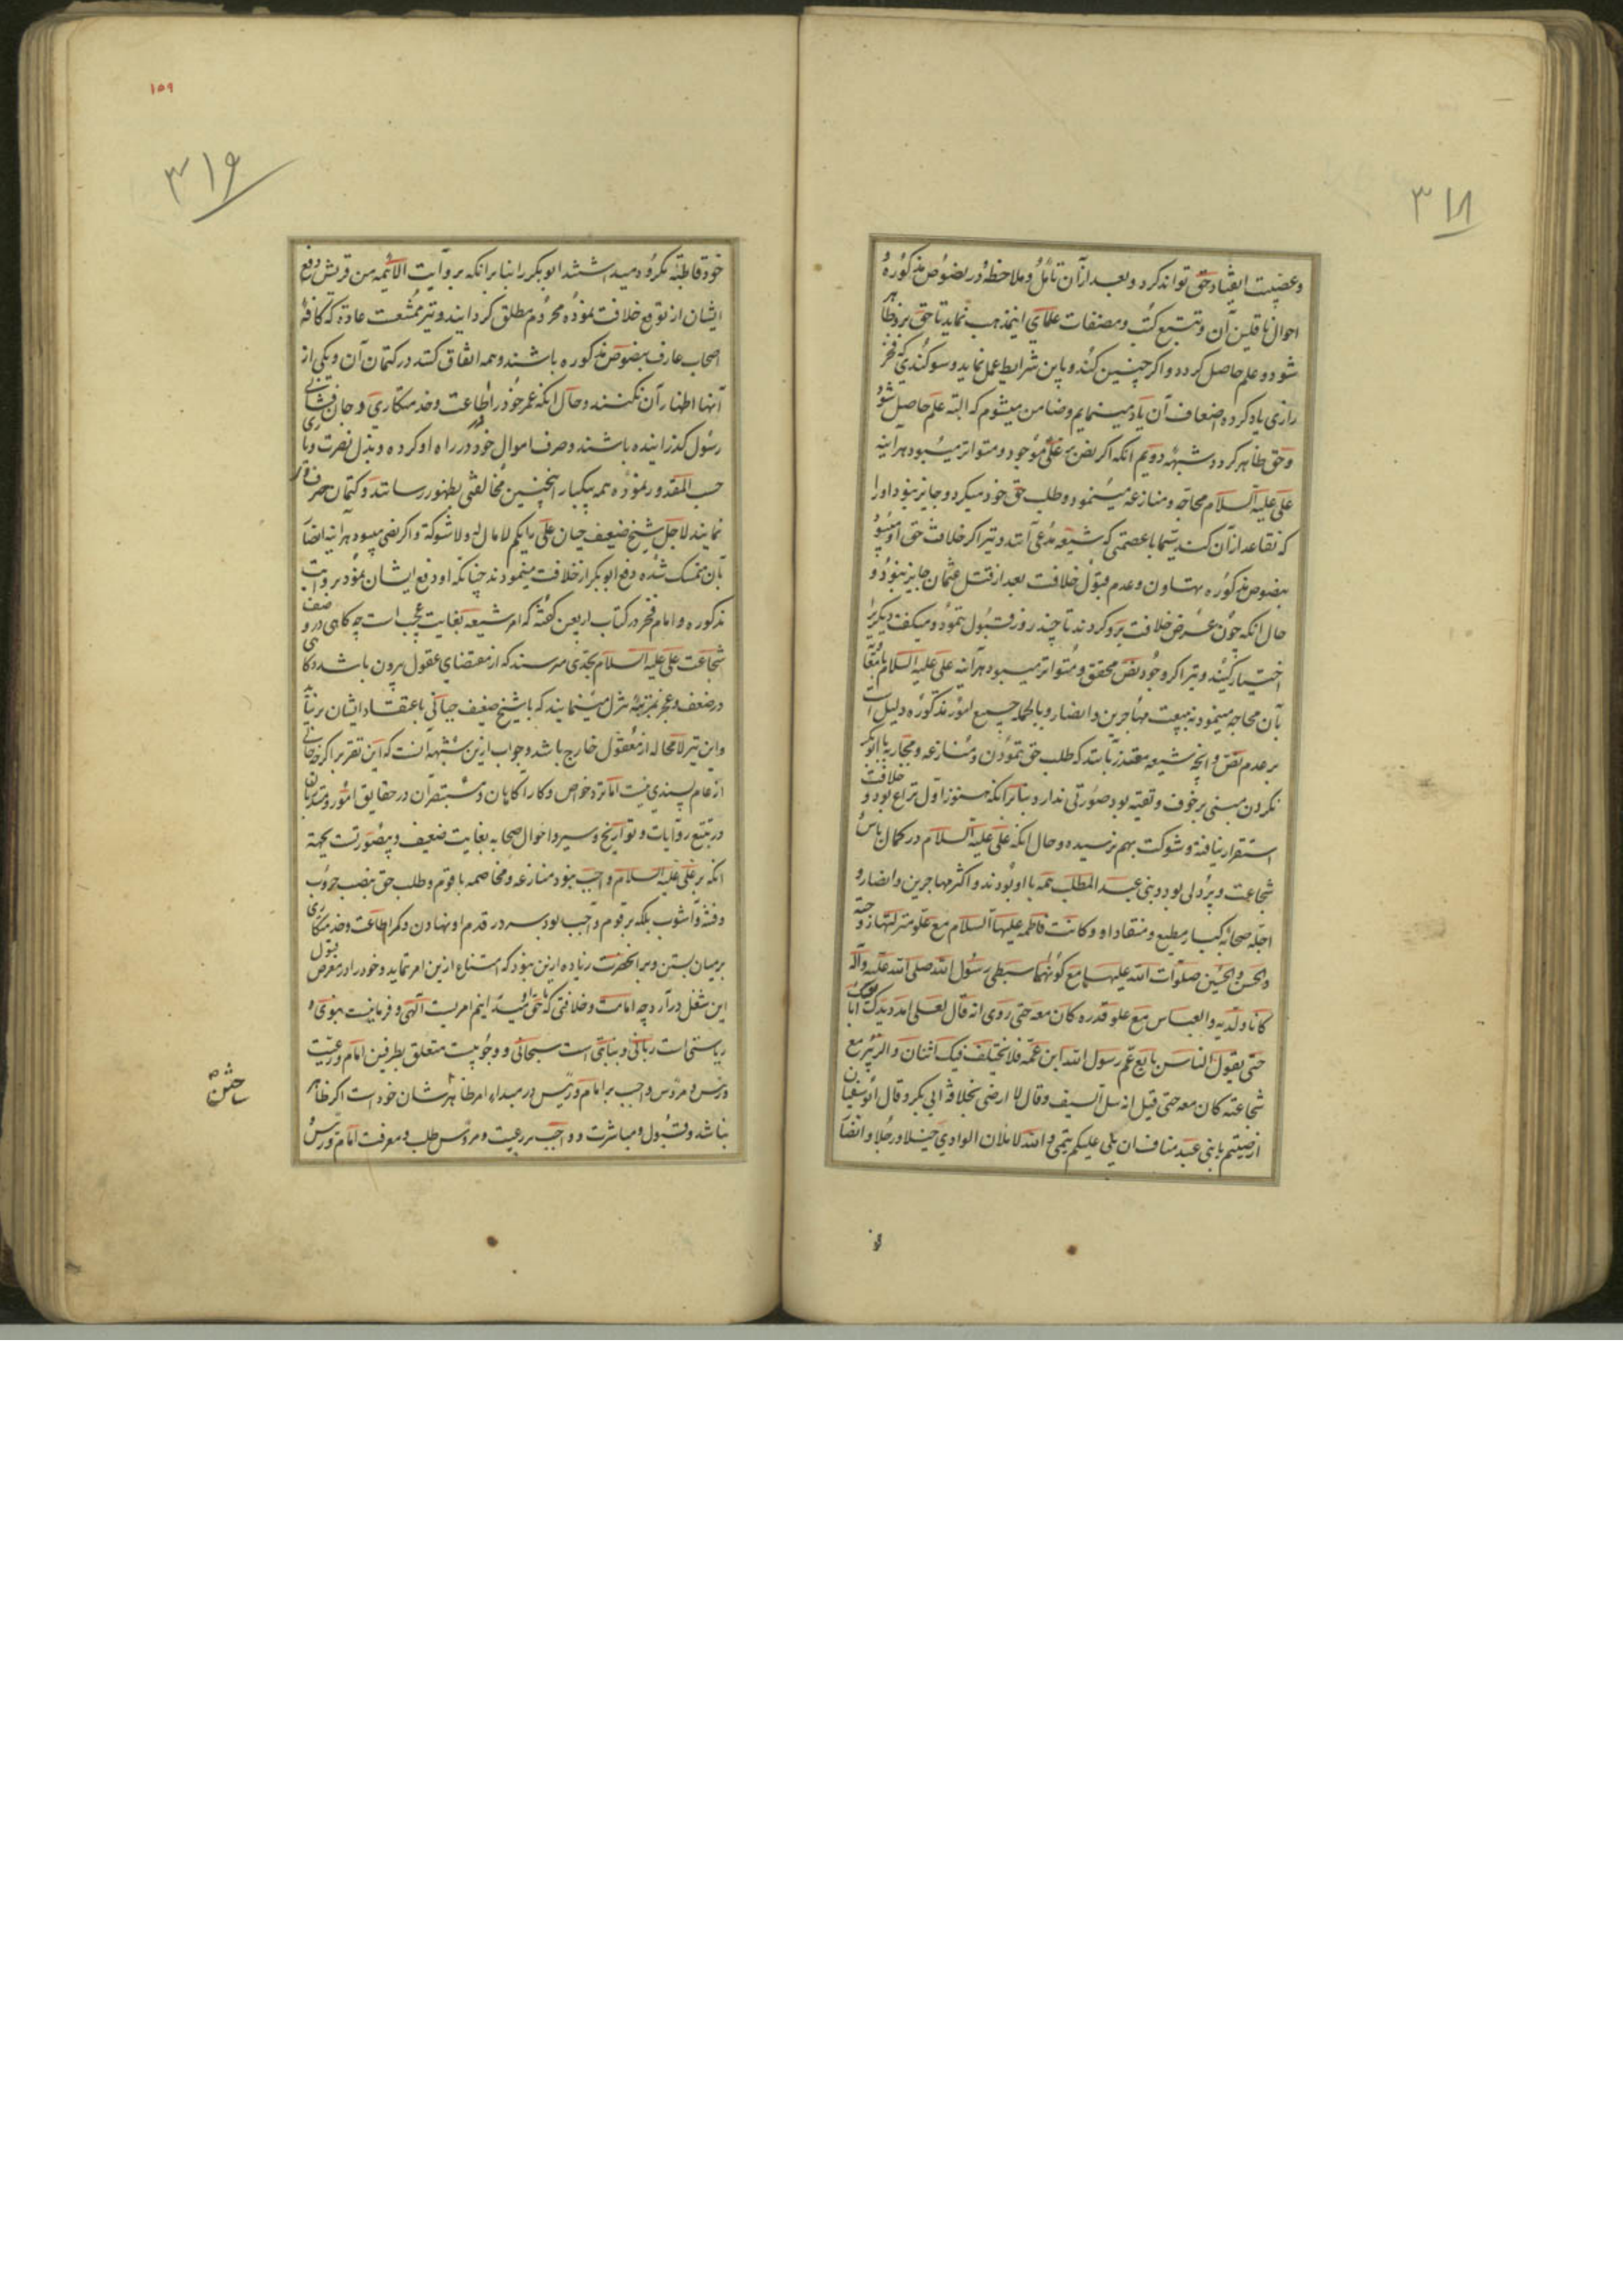 ۳۱۸
وعصبیت انقیاد حق تواند کرد و بعد از آن تأمل و ملاحظه در نصوص مذکوره و
احوال ناقلین آن و تتبع کتب و مصنفات علمای اینمذهب نماید تا حق برو ظاهر
شود و علم حاصل کردد و اگر چنین کند و باین شرایط عمل نماید و سوکندی که فخر
رازی یاد کرده اضعاف آن یاد مینمایم و ضامن میشوم که البته علم حاصل شود
و حق ظاهر کردد شبهه دویم انکه اکر نص بر علی موجود و متواتر میبود هراینه
علی علیه السلام محاجه و منازعه مینمود و طلب حق خود میکرد و جایز نبود او را
که تقاعد از آن کند سیما با عصمتی که شیعه مدعی آنند و نیز اکر خلافت حق او میبود
بنصوص مذکوره تهاون و عدم قبول خلافت بعد از قتل عثمان جایز نبود و
حال انکه چون عرض خلافت برو کردند تا چند روز قبول ننمود و میکفت دیکریرا
اختیار کنید و نیز اکر وجود نص محقق و متواتر میبود هرآینه علی علیه السلام
بآن محاجه مینمود نه ببیعت مهاجرین و انصار و بالجمله جمیع امور مذکوره دلیل است
بر عدم نص و انچه شیعه معتذر بآنند که طلب حق ننمودن و منازعه و محاربه با ابوبکر
نکردن مبنی بر خوف و تقیه بود صورتی ندارد بنابر انکه هنوز اول نزاع بود و خلافت
استقرار نیافته و شوکت بهم نرسیده و حال انکه علی علیه السلام در کمال باس و
شجاعت و پردلی بود و بنی عبد المطلب همه با او بودند و اکثر مهاجرین و انصار و
اجله صحابه کبار مطیع و منقاد او و کانت فاطمه علیها السلام مع علو منزلتها زوجته
والحسن والحسین صلوات الله علیهما مع کونهما سبطی رسول الله صلی الله علیه وآله
کانا ولدیه والعباس مع علو قدره کان معه حتی روی انه قال لعلی امدد یدک ابایعک
حتی یقول الناس بایع عم رسول الله ابن عمه فلا یختلف فیک اثنان والزبیر مع
شجاعته کان معه حتی قیل انه سل السیف وقال لا ارضی بخلافة ابی بکر وقال ابو سفیان
ارضیتم یا بنی عبد مناف ان یلی علیکم تیمی والله لاملان الوادی خیلا ورجلا وانصا
۱۵۹
۳۱۹
خود قاطبة مکروه میداشتند ابو بکر را بنابر انکه بروایت الائمه من قریش دفع
ایشان از توقع خلافت نموده محروم مطلق کردانید و نیز ممتنعست عادة که کافهٔ
اصحاب عارف بنصوص مذکوره باشند و همه اتفاق کنند در کتمان آن و یکی از
آنها اظهار آن نکند و حال انکه عمر خود را در اطاعت و خدمتکاری و جان فشانی
رسول کذرانیده باشند و صرف اموال خود در راه او کرده و بذل نصرت و یاری
حسب المقدور نموده همه بیکبار اینچنین مخالفتی بظهور رسانند و کتمان حق او
نمایند لاجل شیخ ضعیف جبان علی رایکم لا مال له ولا شوکة و اکر نصی میبود هراینه انصار
بآن متمسک شده دفع ابو بکر از خلافت مینمودند چنانکه او دفع ایشان نمود بروایت
مذکوره و امام فخر در کتاب اربعین کفته که امر شیعه بغایت عجب است چه کاهی در وصف
شجاعت علی علیه السلام بحدی میرسند که از مقتضای عقول بیرون باشد و کاهی
در ضعف و عجز بمرتبهٔ تنزل مینمایند که با شیخ ضعیف جبانی باعتقاد ایشان برنیاید
و این نیز لامحاله از معقول خارج باشد و جواب ازین شبهه آنست که این تقریر اکرچه خالی
از عام پسندی نیست اما نزد خواص و کارآکاهان و مستبصران در حقایق امور و متدربان
در تتبع روایات و تواریخ و سیر و احوال صحابه بغایت ضعیف و بیصورتست بجهة
انکه بر علی علیه السلام واجب نبود منازعه و مخاصمه با قوم و طلب حق بنصب حروب
و فتنه و آشوب بلکه بر قوم واجب بود سر در قدم او نهادن و کمر اطاعت و خدمتکاری
بر میان بستن و بر انحضرت زیاده ازین نبود که امتناع ازین امر ننماید و خود را در معرض قبول
این شغل درآرد چه امامت و خلافتی که امریست آلهی و فرمانیست نبوی و
ریاستی است ربانی و نیابتی است سبحانی و وجوبیست متعلق بطرفین امام و رعیت
و رئیس و مرؤس واجب بر امام و رئیس در مبداء امر ظاهر شان خود است اکر ظاهر
نباشد و قبول و مباشرت و واجب بر رعیت و مرؤس طلب و معرفت امام و رئیس